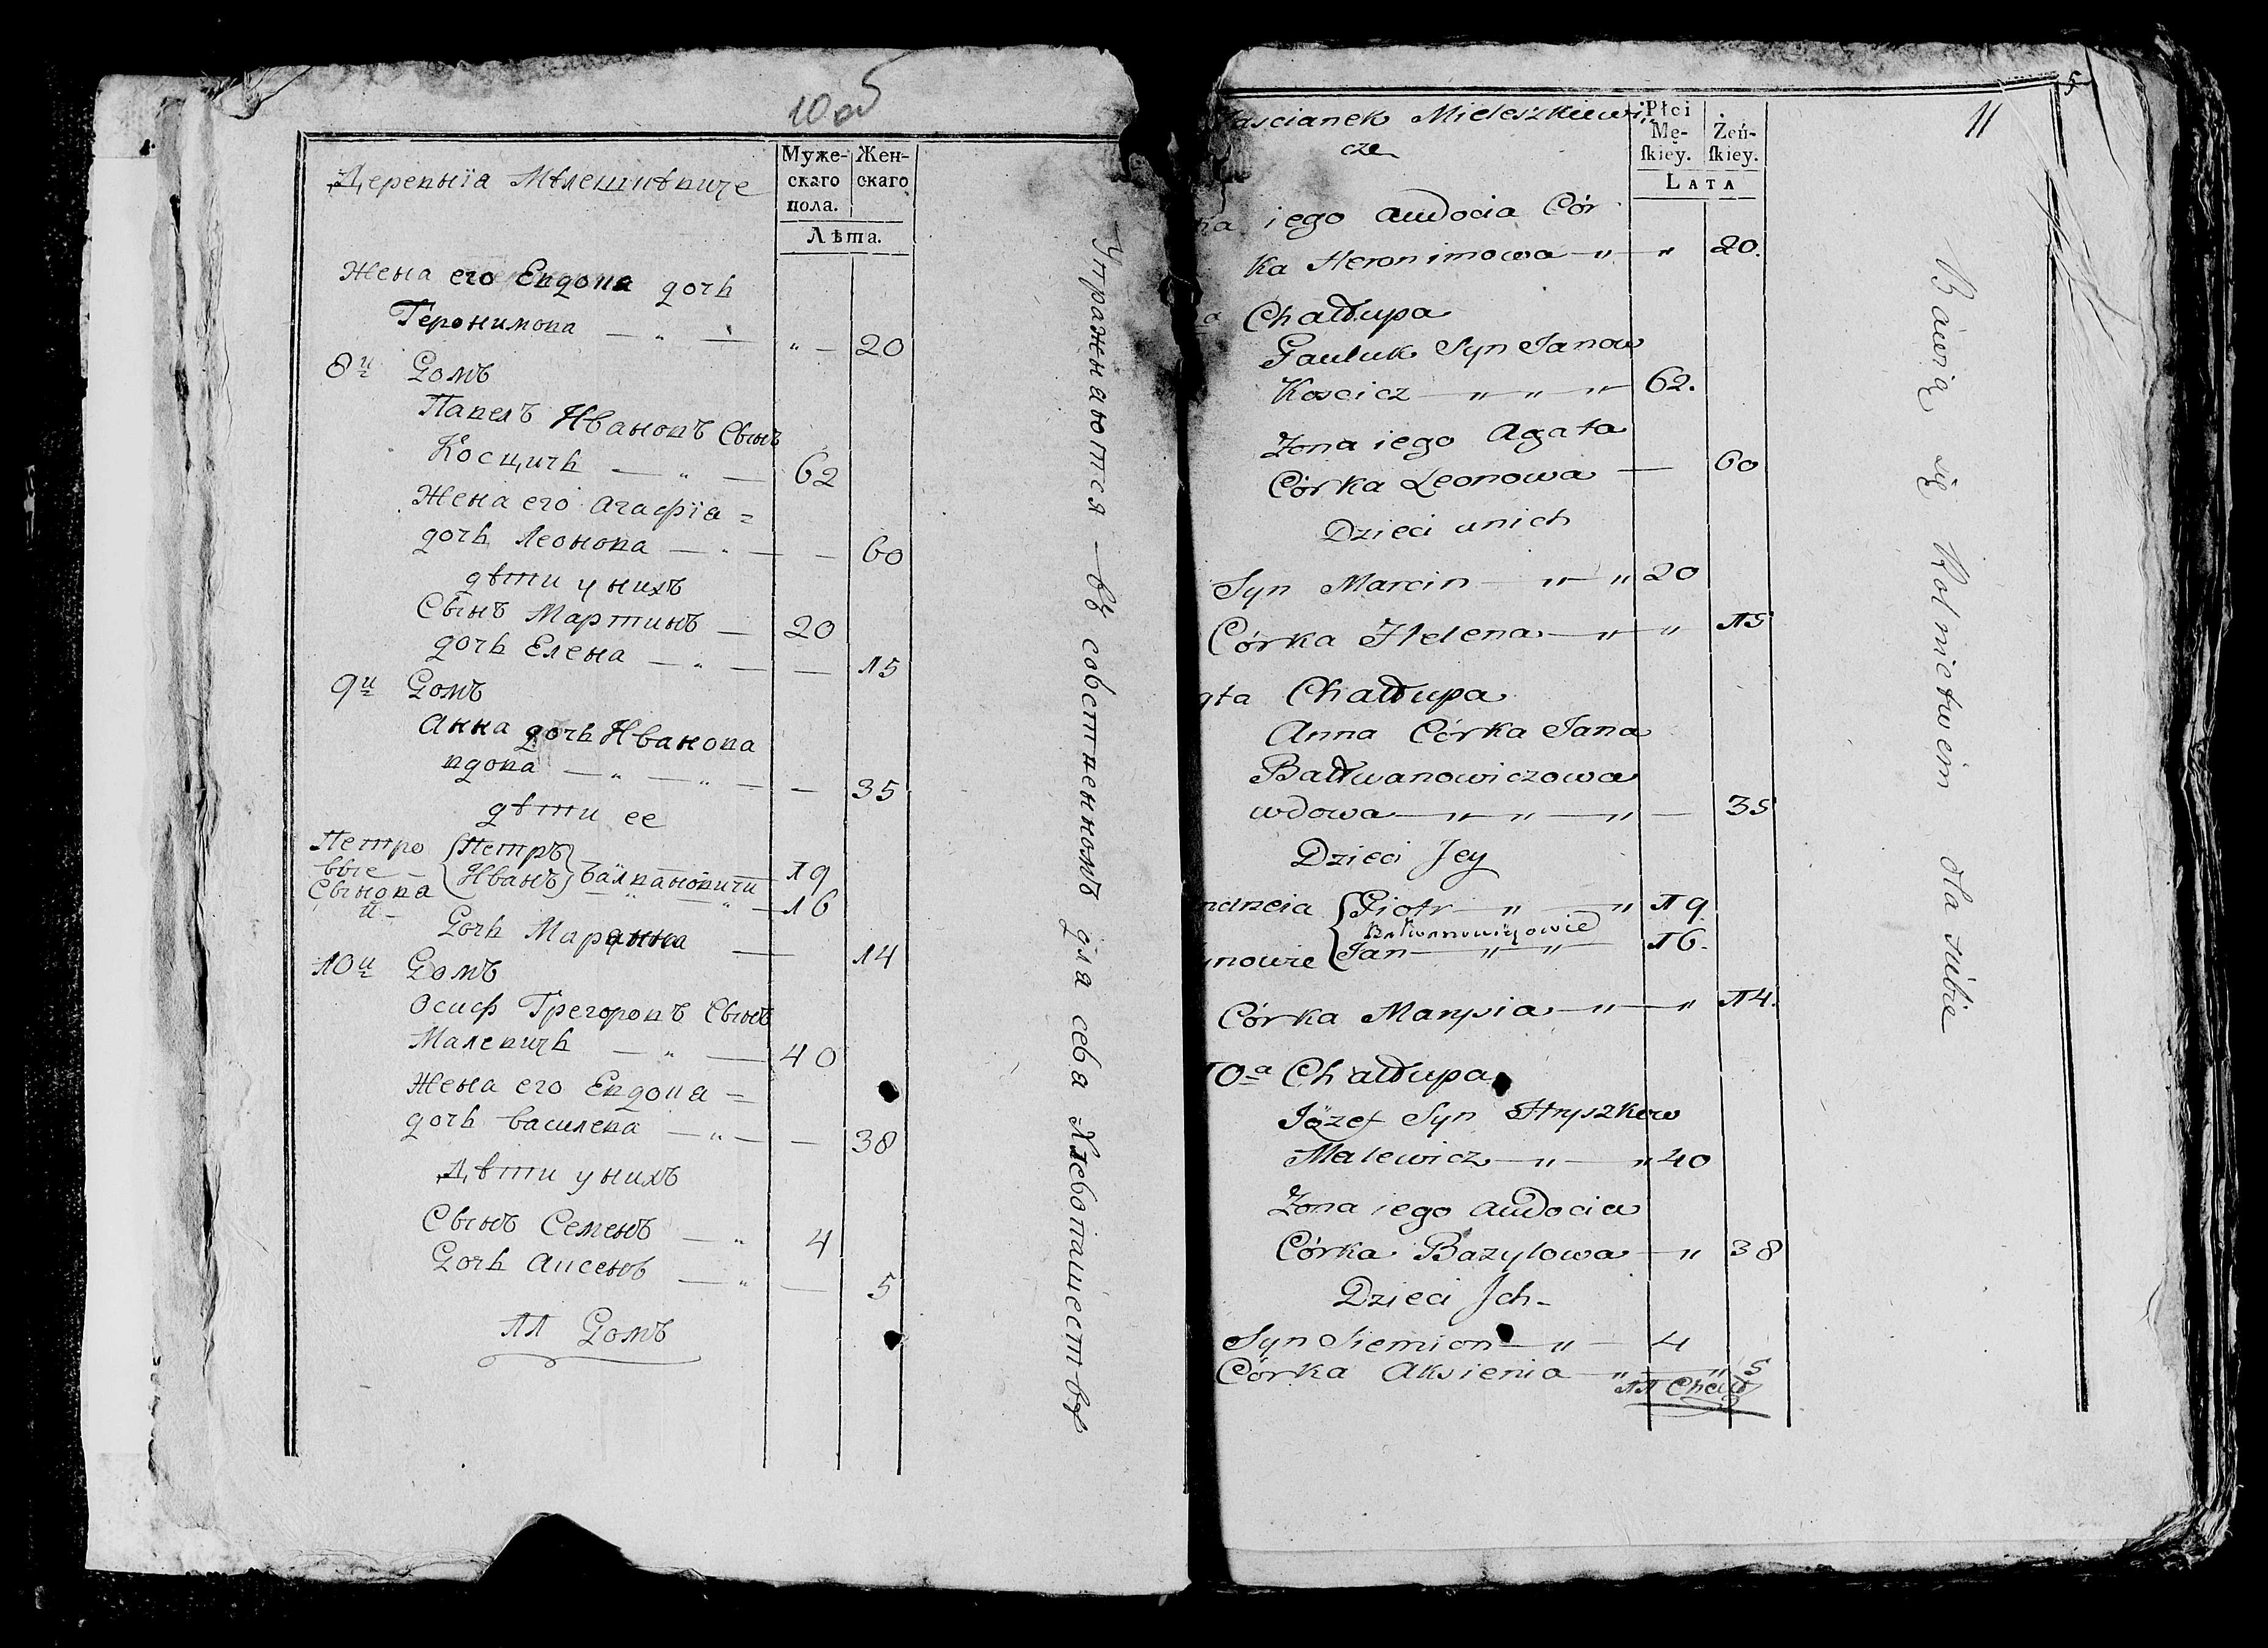 10 об
Муже-
скаго
пола.
Жен-
скаго
Лѣта.
Деревнїа Мѣлешкѣвиче
Жена его Евдокиа дочь
Геронимова — " — " — 20
8й Домъ
Павелъ Ивановъ Сынъ
Косцичь — " — 62
Жена его Агафїа =
дочь Леонова — " — — 60
дѣти у нихъ
Сынъ Мартинъ — 20
дочь Елена — " — — 15
9й Домъ
Анна дочь Иванова
вдова — " — " — — 35
дѣти ее
Петро Петръ
вые Иванъ Балвановичи 19
Сынова — " — " — 16
и
Дочь Марянна — — 14
10й Домъ
Осиф Грегоровъ Сынъ
Малевичь — " — 40
Жена его Евдокиа =
дочь Василева — " — — 38
Дѣти у нихъ
Сынъ Семенъ — " 4
Дочь — " — 5
11 Домъ
Упражнаются въ собственномъ для себя Хлебопашеств
5
11
Płci
Mę-
ſkiey.
Żeń-
ſkiey.
LATA
aścianek Mieleszkiewi
cze
na iego Audocia Cór
ka Heronimowa — " — " 20.
a Chałupa
Pauluk Syn Janow
Koscicz — " — " — " 62.
Żona iego Agata
Córka Leonowa — 60
Dzieci unich
Syn Marcin — " — " 20
Córka Helena — " — " 15
ta Chałupa
Anna Córka Jana
Bałwanowiczowa
wdowa — " — " — " — 35
Dzieci Jey
Piotr — " — " 19
Bałwanowiczowie
nowie Jan — " — " 16.
Córka Marysia — " — " 14.
10a Chałupa
Józef Syn Hryszkow
Malewicz — " — " 40
Żona iego Audocia
Córka Bazylowa — " 38
Dzieci Jch —
Syn Siemion — " — 4
Córka Aksienia — " — " 5
11 Chałup
Bawią się Rolnictwem dla siebie